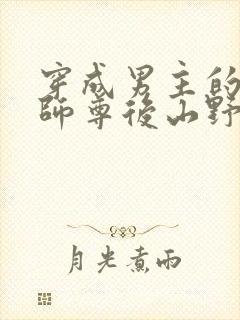 穿成男主的
師尊後山野
月光煮雨